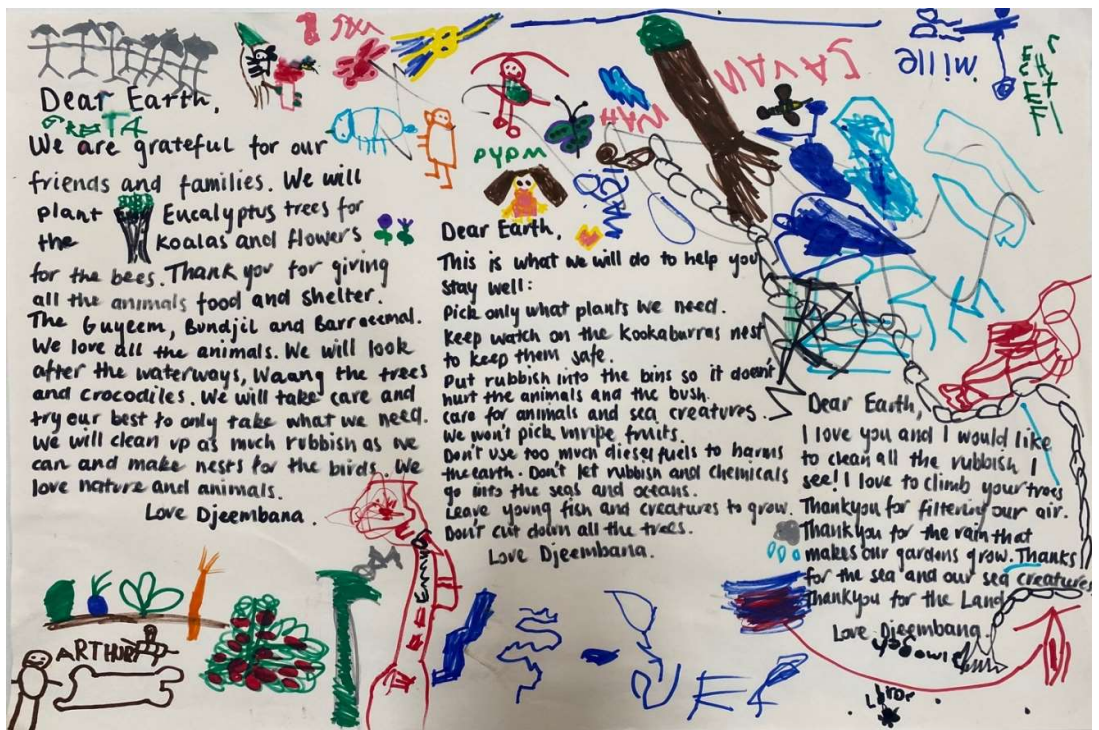 Dear Earth,
GRETA
We are grateful for our
friends and families. We will
plant Eucalyptus trees for
the koalas and flowers
for the bees. Thank you for giving
all the animals food and shelter.
The Guyeem, Bundjil and Barraeemal.
We love all the animals. We will look
after the waterways, Waang the trees
and crocodiles. We will take care and
try our best to only take what we need.
We will clean up as much rubbish as we
can and make nests for the birds. We
love nature and animals.
Love Djeembana.
Dear Earth,
This is what we will do to help you
stay well:
Pick only what plants we need.
Keep watch on the Kookaburras nest
to keep them safe.
Put rubbish into the bins so it doesn't
hurt the animals and the bush.
Care for animals and sea creatures.
We won't pick unripe fruits.
Don't use too much diesel fuels to harms
the earth. Don't let rubbish and chemicals
go into the seas and oceans.
Leave young fish and creatures to grow.
Don't cut down all the trees.
Love Djeembana.
Dear Earth,
I love you and I would like
to clean all the rubbish I
see! I love to climb your trees
Thankyou for filtering our air.
Thankyou for the rain that
makes our gardens grow. Thanks
for the sea and our sea creatures
Thankyou for the Land
Love Djeembana.
ARTHUR
mille